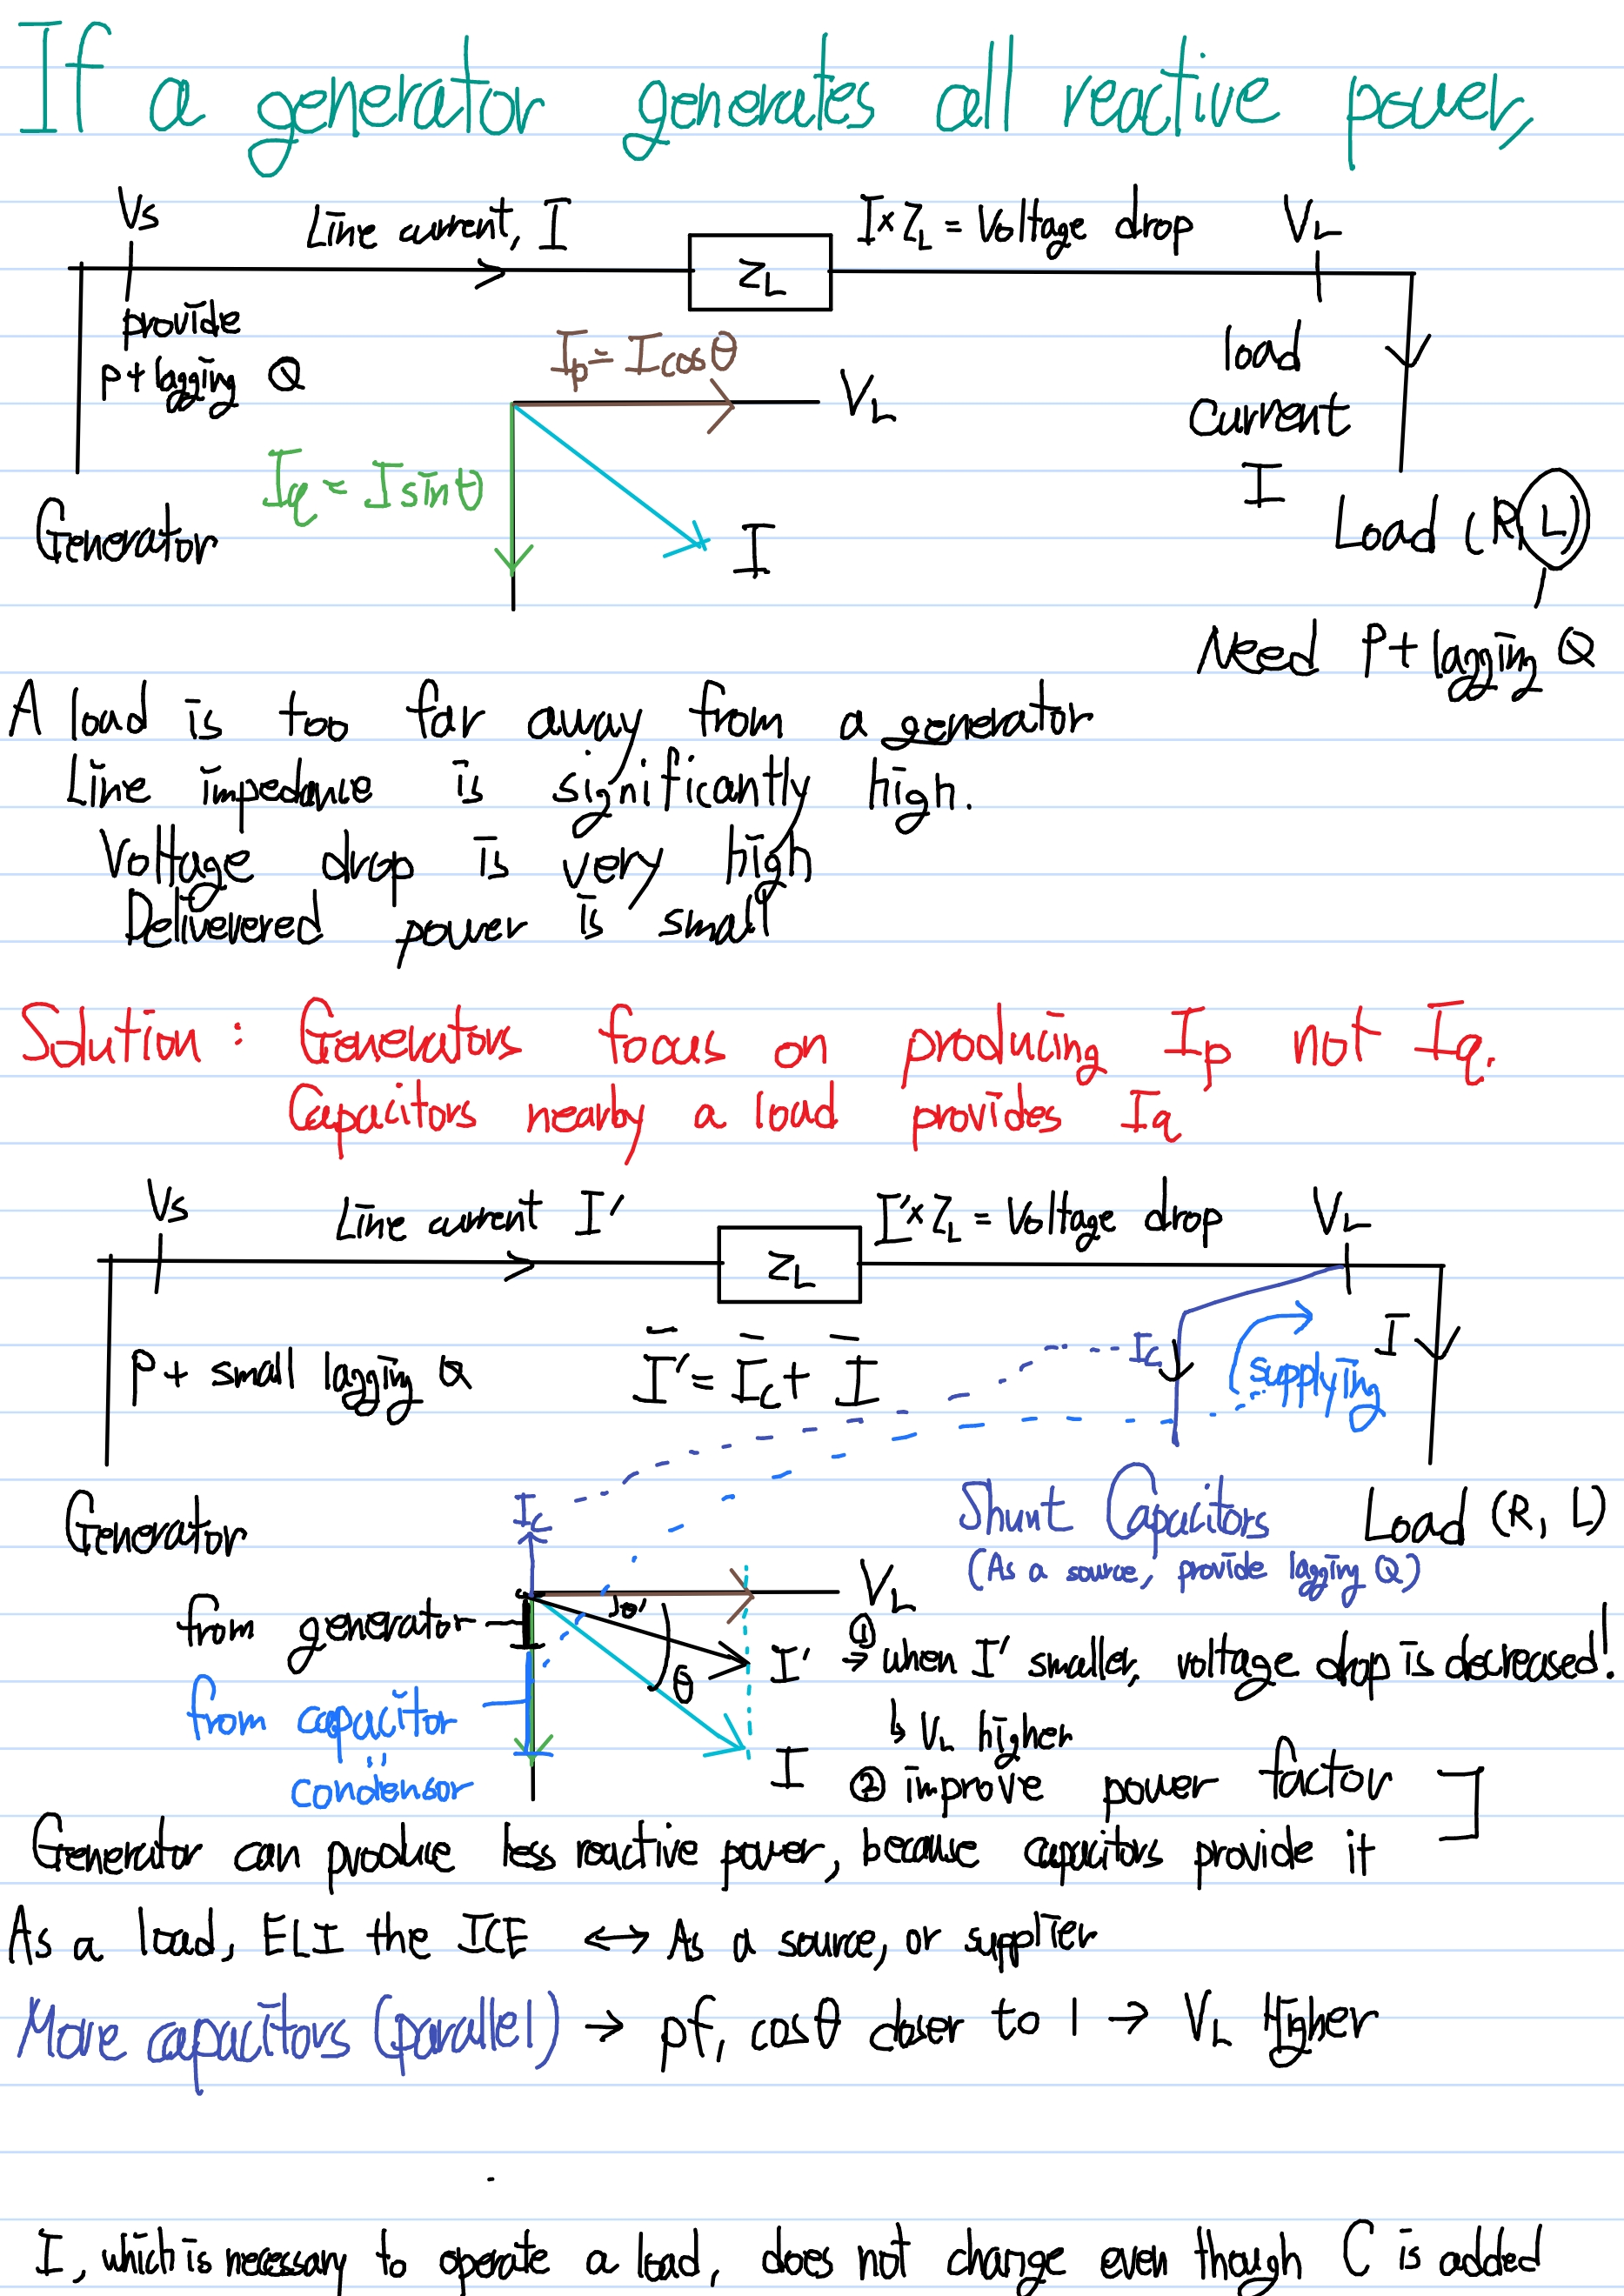 If a generator generates all reactive power,
Vs
Line current, I
I×ZL = Voltage drop
VL
ZL
provide
P+lagging Q
Ip = Icosθ
VL
load
current
I
Iq = Isinθ
I
Generator
Load (R, L)
Need P+ lagging Q
A load is too far away from a generator
Line impedance is significantly high.
Voltage drop is very high
Delivered power is small
Solution : Generators focus on producing Ip not Iq.
Capacitors nearby a load provides Iq
Vs
Line current I'
I'×ZL = Voltage drop
VL
ZL
P+ small lagging Q
I' = Ic + I
Ic
supplying
I
Generator
Ic
Shunt Capacitors
(As a source, provide lagging Q)
Load (R, L)
VL
from generator
θ'
θ
I'
① → when I' smaller, voltage drop is decreased!
↳ VL higher
from capacitor
condensor
I
② improve power factor
Generator can produce less reactive power, because capacitors provide it
As a load, ELI the ICE ↔ As a source, or supplier
More capacitors (parallel) → pf, cosθ closer to 1 → VL Higher
I, which is necessary to operate a load, does not change even though C is added